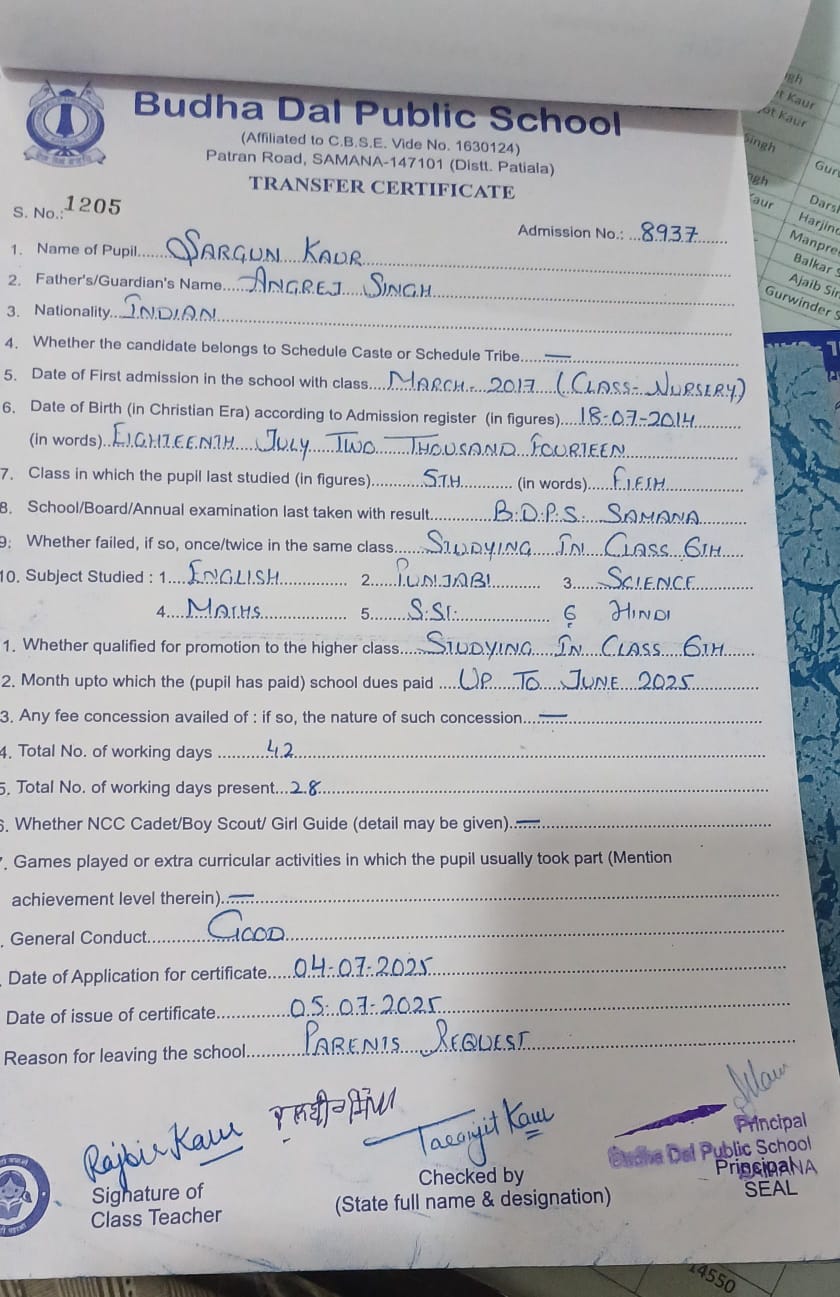 Budha Dal Public School
(Affiliated to C.B.S.E. Vide No. 1630124)
Patran Road, SAMANA-147101 (Distt. Patiala)
TRANSFER CERTIFICATE
S. No.: 1205
Admission No.: ...8937
1. Name of Pupil......SARGUN KAUR
2. Father's/Guardian's Name.....ANGREJ SINGH
3. Nationality..INDIAN
4. Whether the candidate belongs to Schedule Caste or Schedule Tribe....—
5. Date of First admission in the school with class....MARCH-2017 (CLASS-NURSERY)
6. Date of Birth (in Christian Era) according to Admission register (in figures)....18-07-2014
(in words)..EIGHTEENTH JULY TWO THOUSAND FOURTEEN
7. Class in which the pupil last studied (in figures)..........5TH.......... (in words).....FIFTH
8. School/Board/Annual examination last taken with result............B.D.P.S. SAMANA
9. Whether failed, if so, once/twice in the same class......STUDYING IN CLASS 6TH
10. Subject Studied : 1....ENGLISH 2.....PUNJABI 3.....SCIENCE
4....MATHS 5.......S.ST. 6 HINDI
1. Whether qualified for promotion to the higher class.....STUDYING IN CLASS 6TH
2. Month upto which the (pupil has paid) school dues paid ....UP TO JUNE 2025
3. Any fee concession availed of : if so, the nature of such concession...—
4. Total No. of working days .........42
5. Total No. of working days present...28
6. Whether NCC Cadet/Boy Scout/ Girl Guide (detail may be given)..—
. Games played or extra curricular activities in which the pupil usually took part (Mention
achievement level therein)..—
. General Conduct...........GOOD
. Date of Application for certificate.....04-07-2025
Date of issue of certificate..............05-07-2025
Reason for leaving the school...........PARENTS REQUEST
Rajbir Kaur
Signature of
Class Teacher
Checked by
(State full name & designation)
Principal
Budha Dal Public School
SAMANA
Principal
SEAL
gh
t Kaur
ot Kaur
Singh
ngh
Kaur
Harjin
Manpre
Balkar S
Ajaib Sin
Gurwinder S
14550